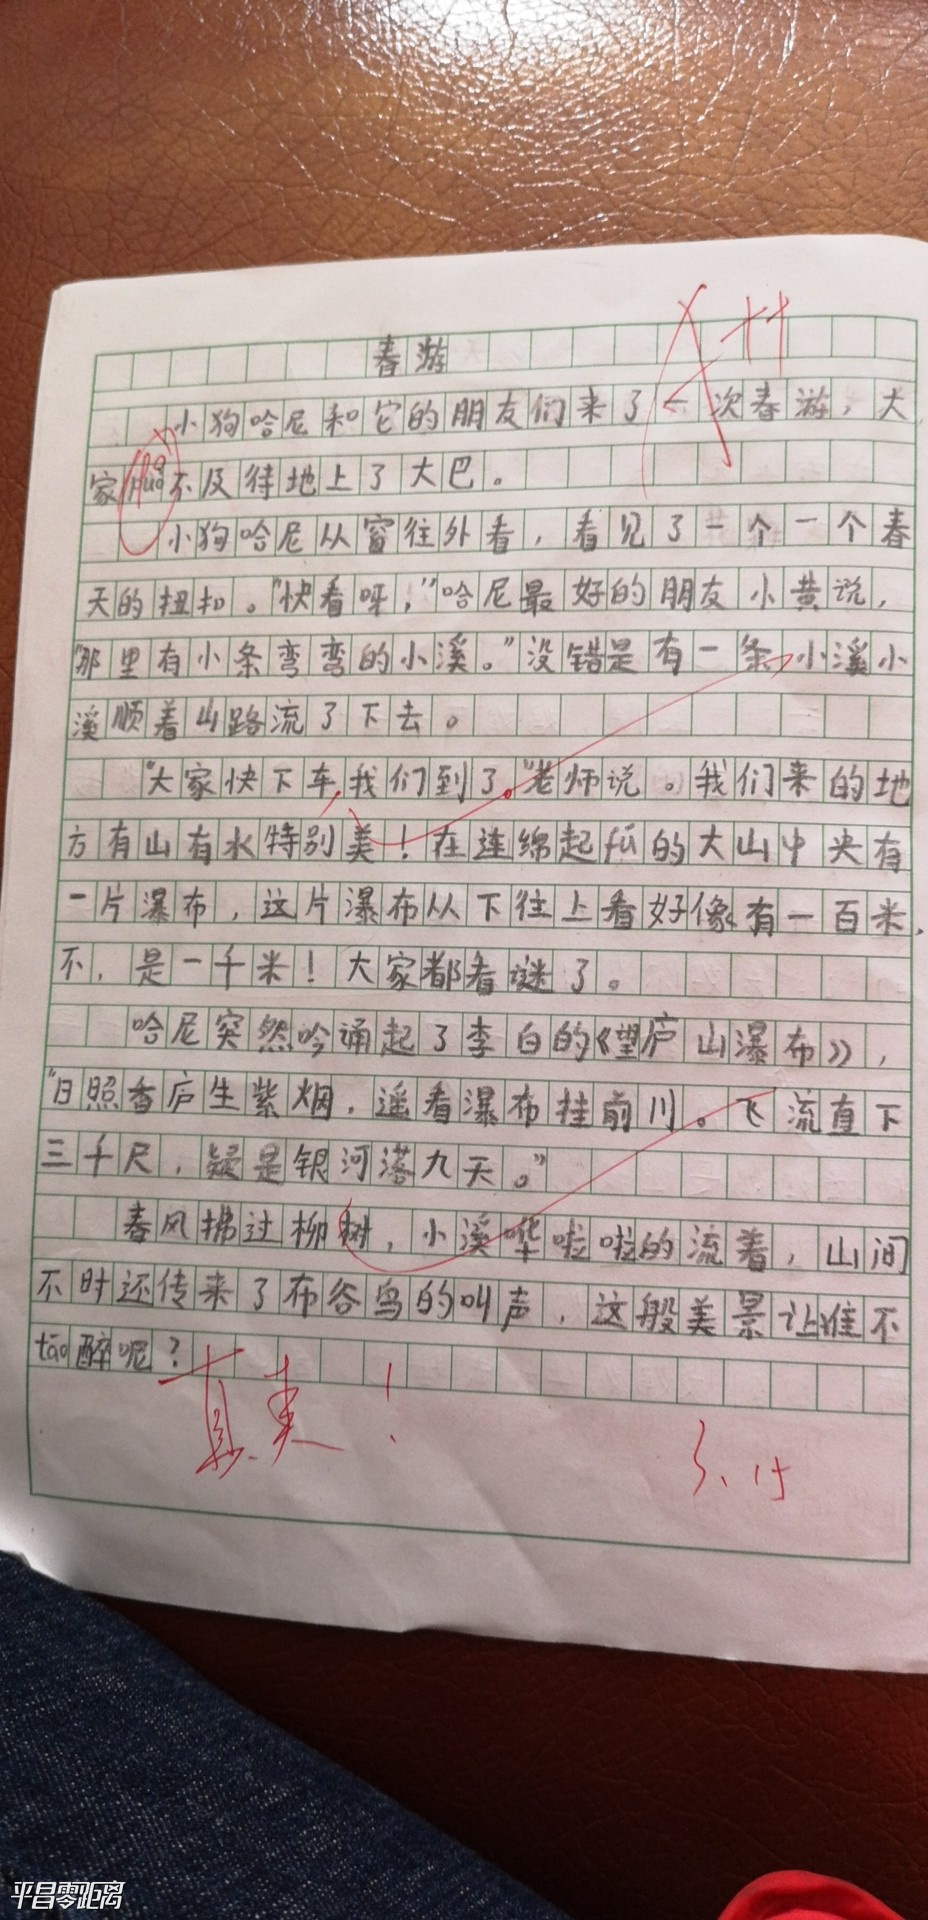 春游
小狗哈尼和它的朋友们来了一次春游，大
家不及待地上了大巴。
小狗哈尼从窗往外看，看见了一个一个春
天的扭扣。“快看呀，”哈尼最好的朋友小黄说，
“那里有小条弯弯的小溪。”没错是有一条小溪小
溪顺着山路流了下去。
“大家快下车，我们到了。”老师说。我们来的地
方有山有水特别美！在连绵起fú的大山中央有
一片瀑布，这片瀑布从下往上看好像有一百米，
不，是一千米！大家都看谜了。
哈尼突然吟诵起了李白的《望庐山瀑布》，
“日照香庐生紫烟，遥看瀑布挂前川。飞流直下
三千尺，疑是银河落九天。”
春风拂过柳树，小溪哗啦啦的流着，山间
不时还传来了布谷鸟的叫声，这般美景让谁不
táo醉呢？
真美！
3.15
平昌零距离